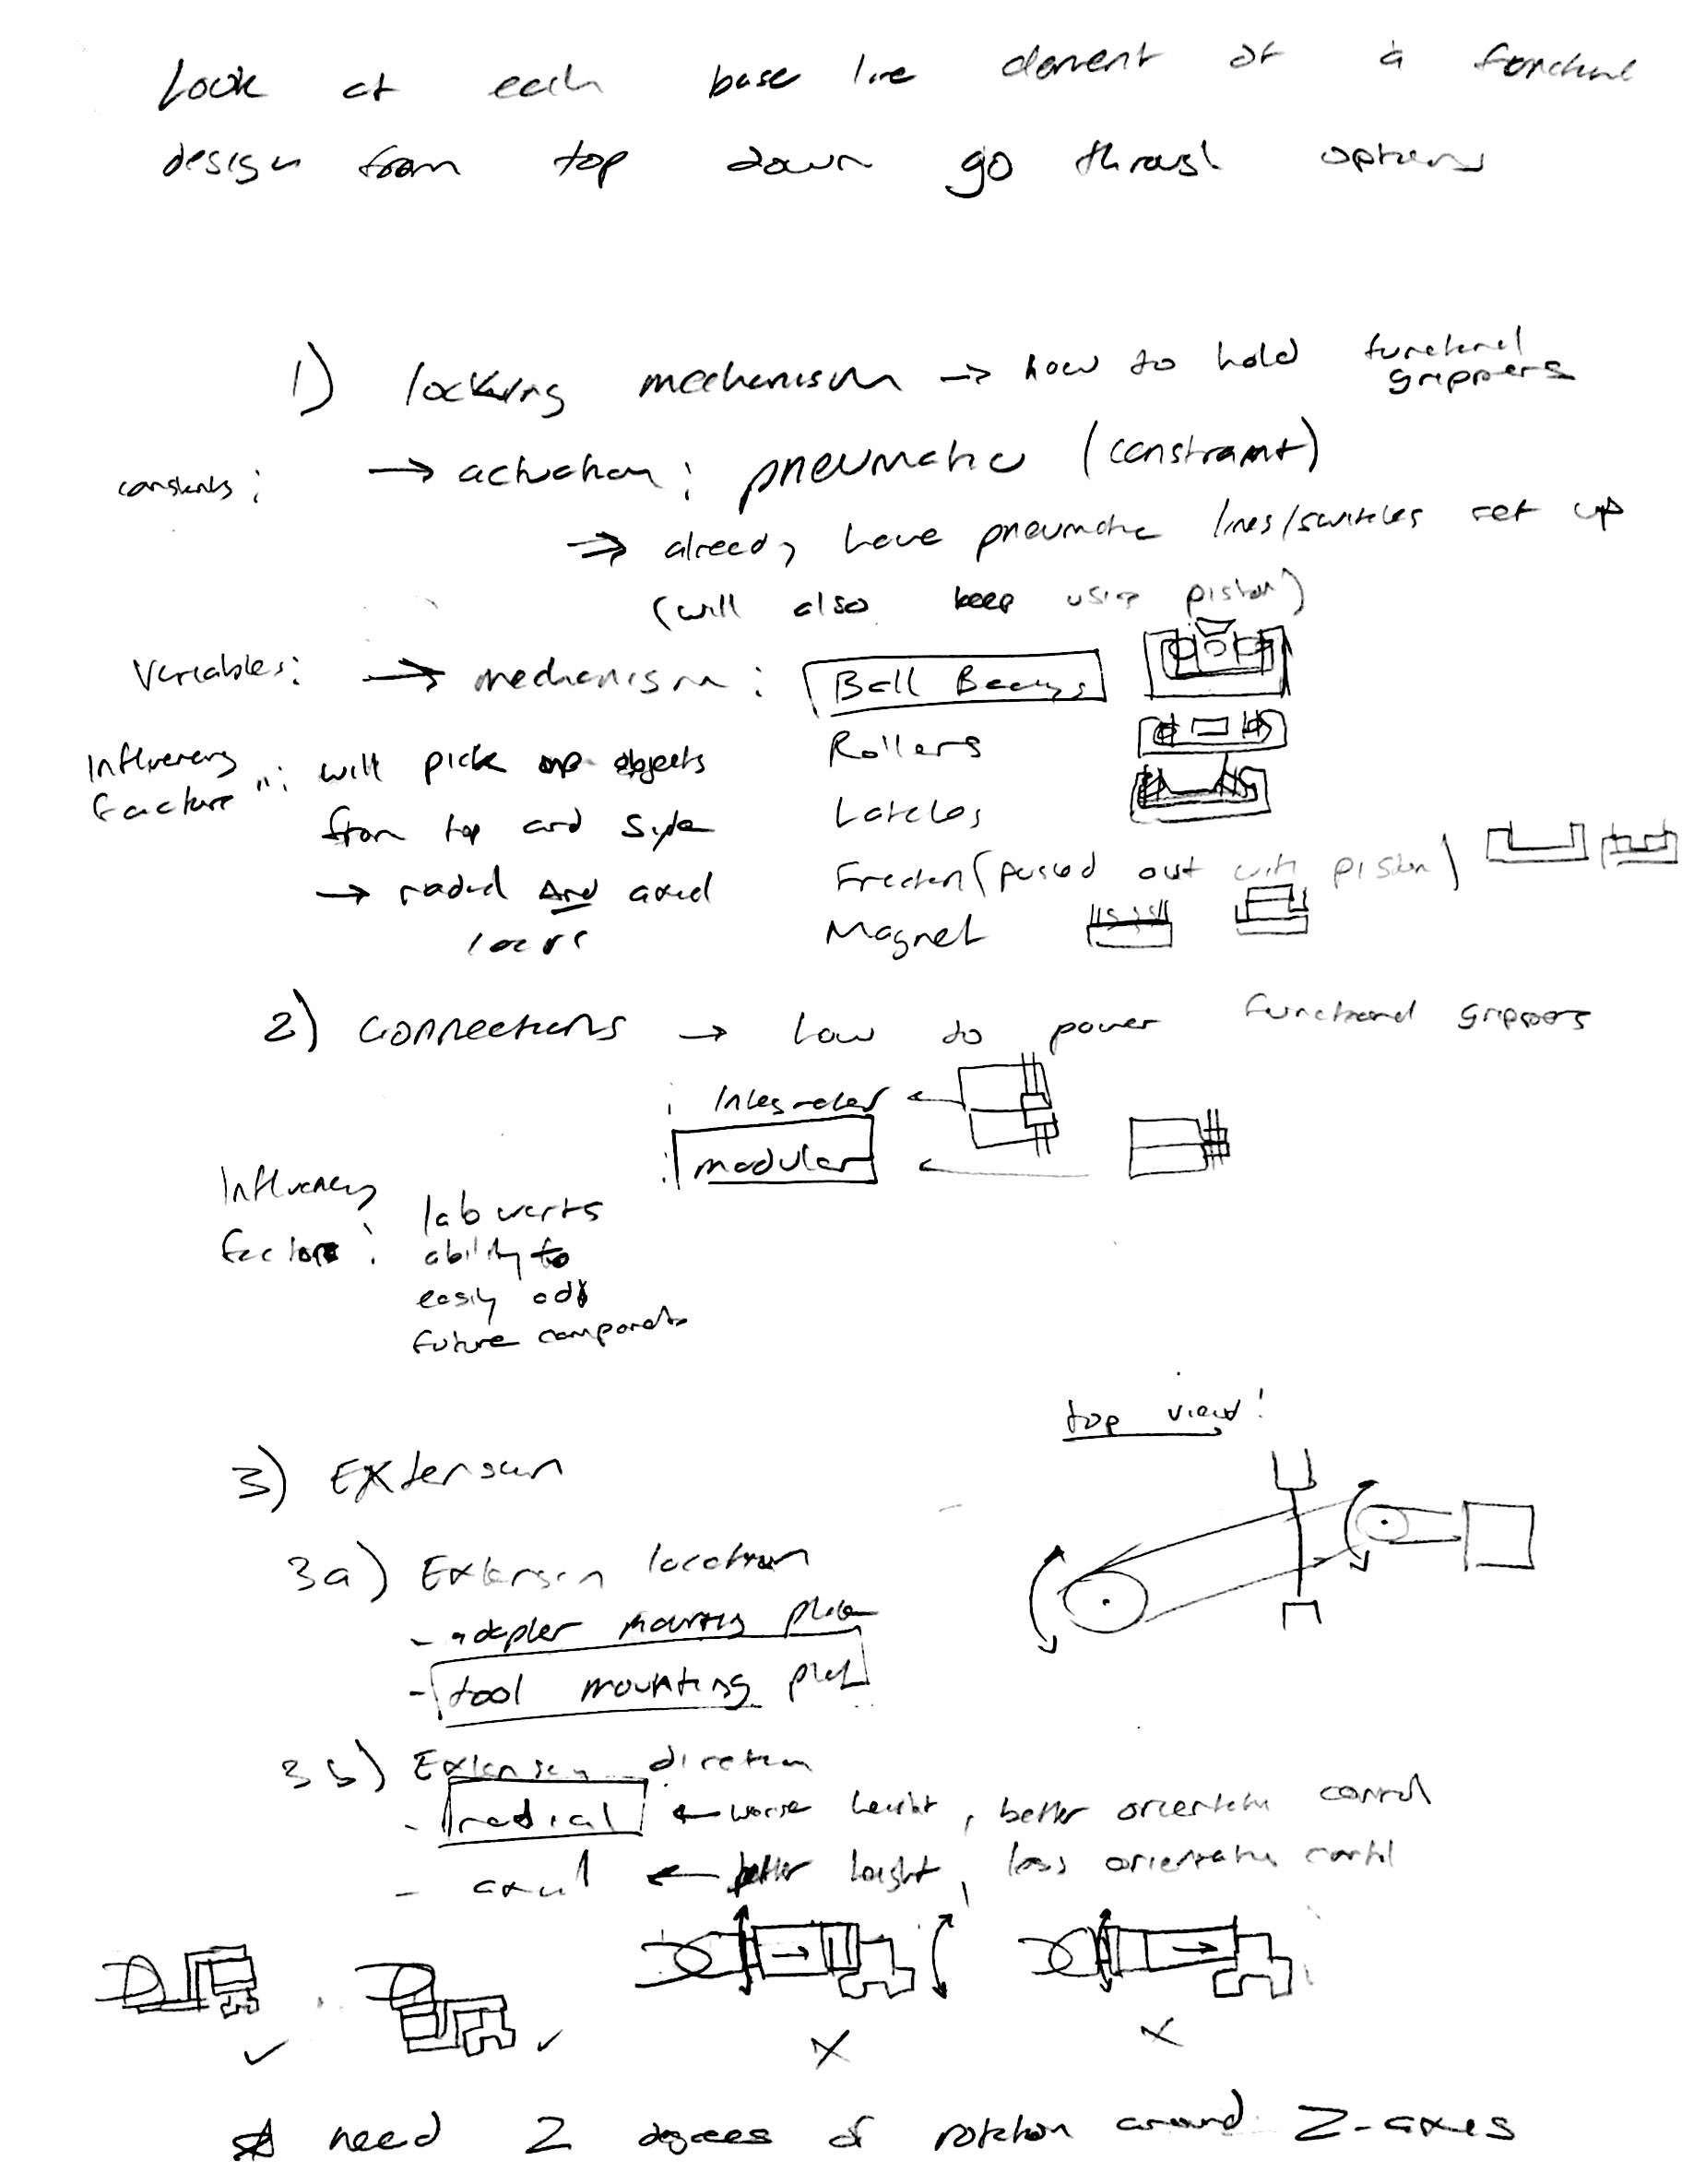 Look at each base line element of a functional
design from top down go through options
1) locking mechanism → how to hold functional grippers
constants: → actuation: pneumatic (constraint)
⇒ already have pneumatic lines/switches set up
(will also keep using piston)
Variables: → mechanism: Ball Bearings
Rollers
Latches
Friction (pushed out with piston)
Magnet
Influencing factors: will pick up objects
from top and side
→ radial and axial
locks
2) connections → how to power functional grippers
: Integrated ←
: modular ←
Influencing factors: lab wants
ability to
easily add
future components
top view:
3) Extension
3a) Extension location
- adapter mounting plate
- tool mounting plate
3b) Extension direction
- radial ← worse height, better orientation control
- axial ← better height, less orientation control
✓ ✓ X X
☆ need 2 degrees of rotation around Z-axes